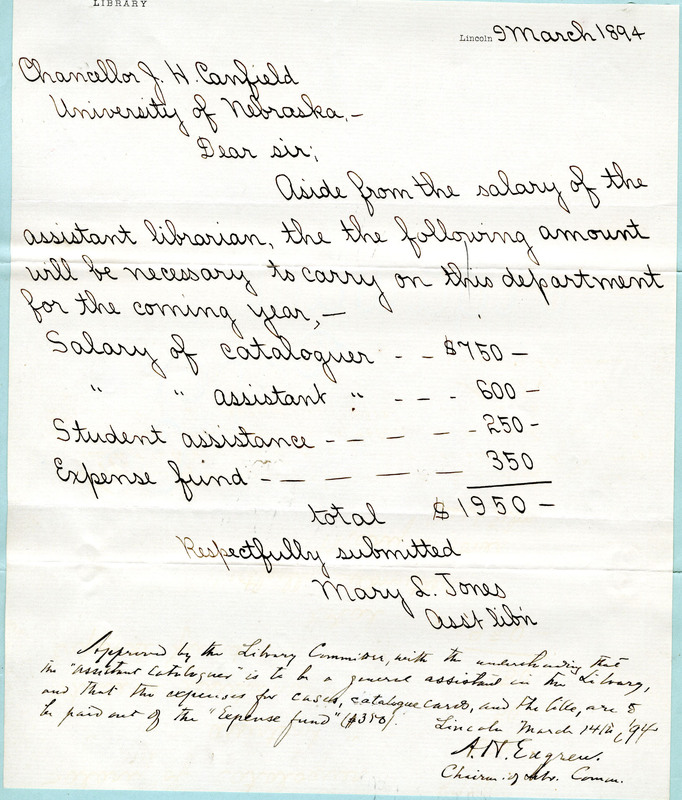 LIBRARY
Lincoln 9 March 1894
Chancellor J. H. Canfield
University of Nebraska,—
Dear sir;
Aside from the salary of the
assistant librarian, the the following amount
will be necessary to carry on this department
for the coming year,—
Salary of cataloguer - - $750 —
" " assistant " - - - 600 —
Student assistance - - - - - 250 -
Expense fund - - - - - 350
total $1950 —
Respectfully submitted
Mary L. Jones
Ass't lib'n
Approved by the Library Committee, with the understanding that
the "assistant cataloguer" is to be a general assistant in the Library,
and that the expenses for cases, catalogue cards, and the like, are to
be paid out of the "Expense fund" ($350). Lincoln March 14th, '94
A. H. Edgren.
Chairm. of Libr. Comm.